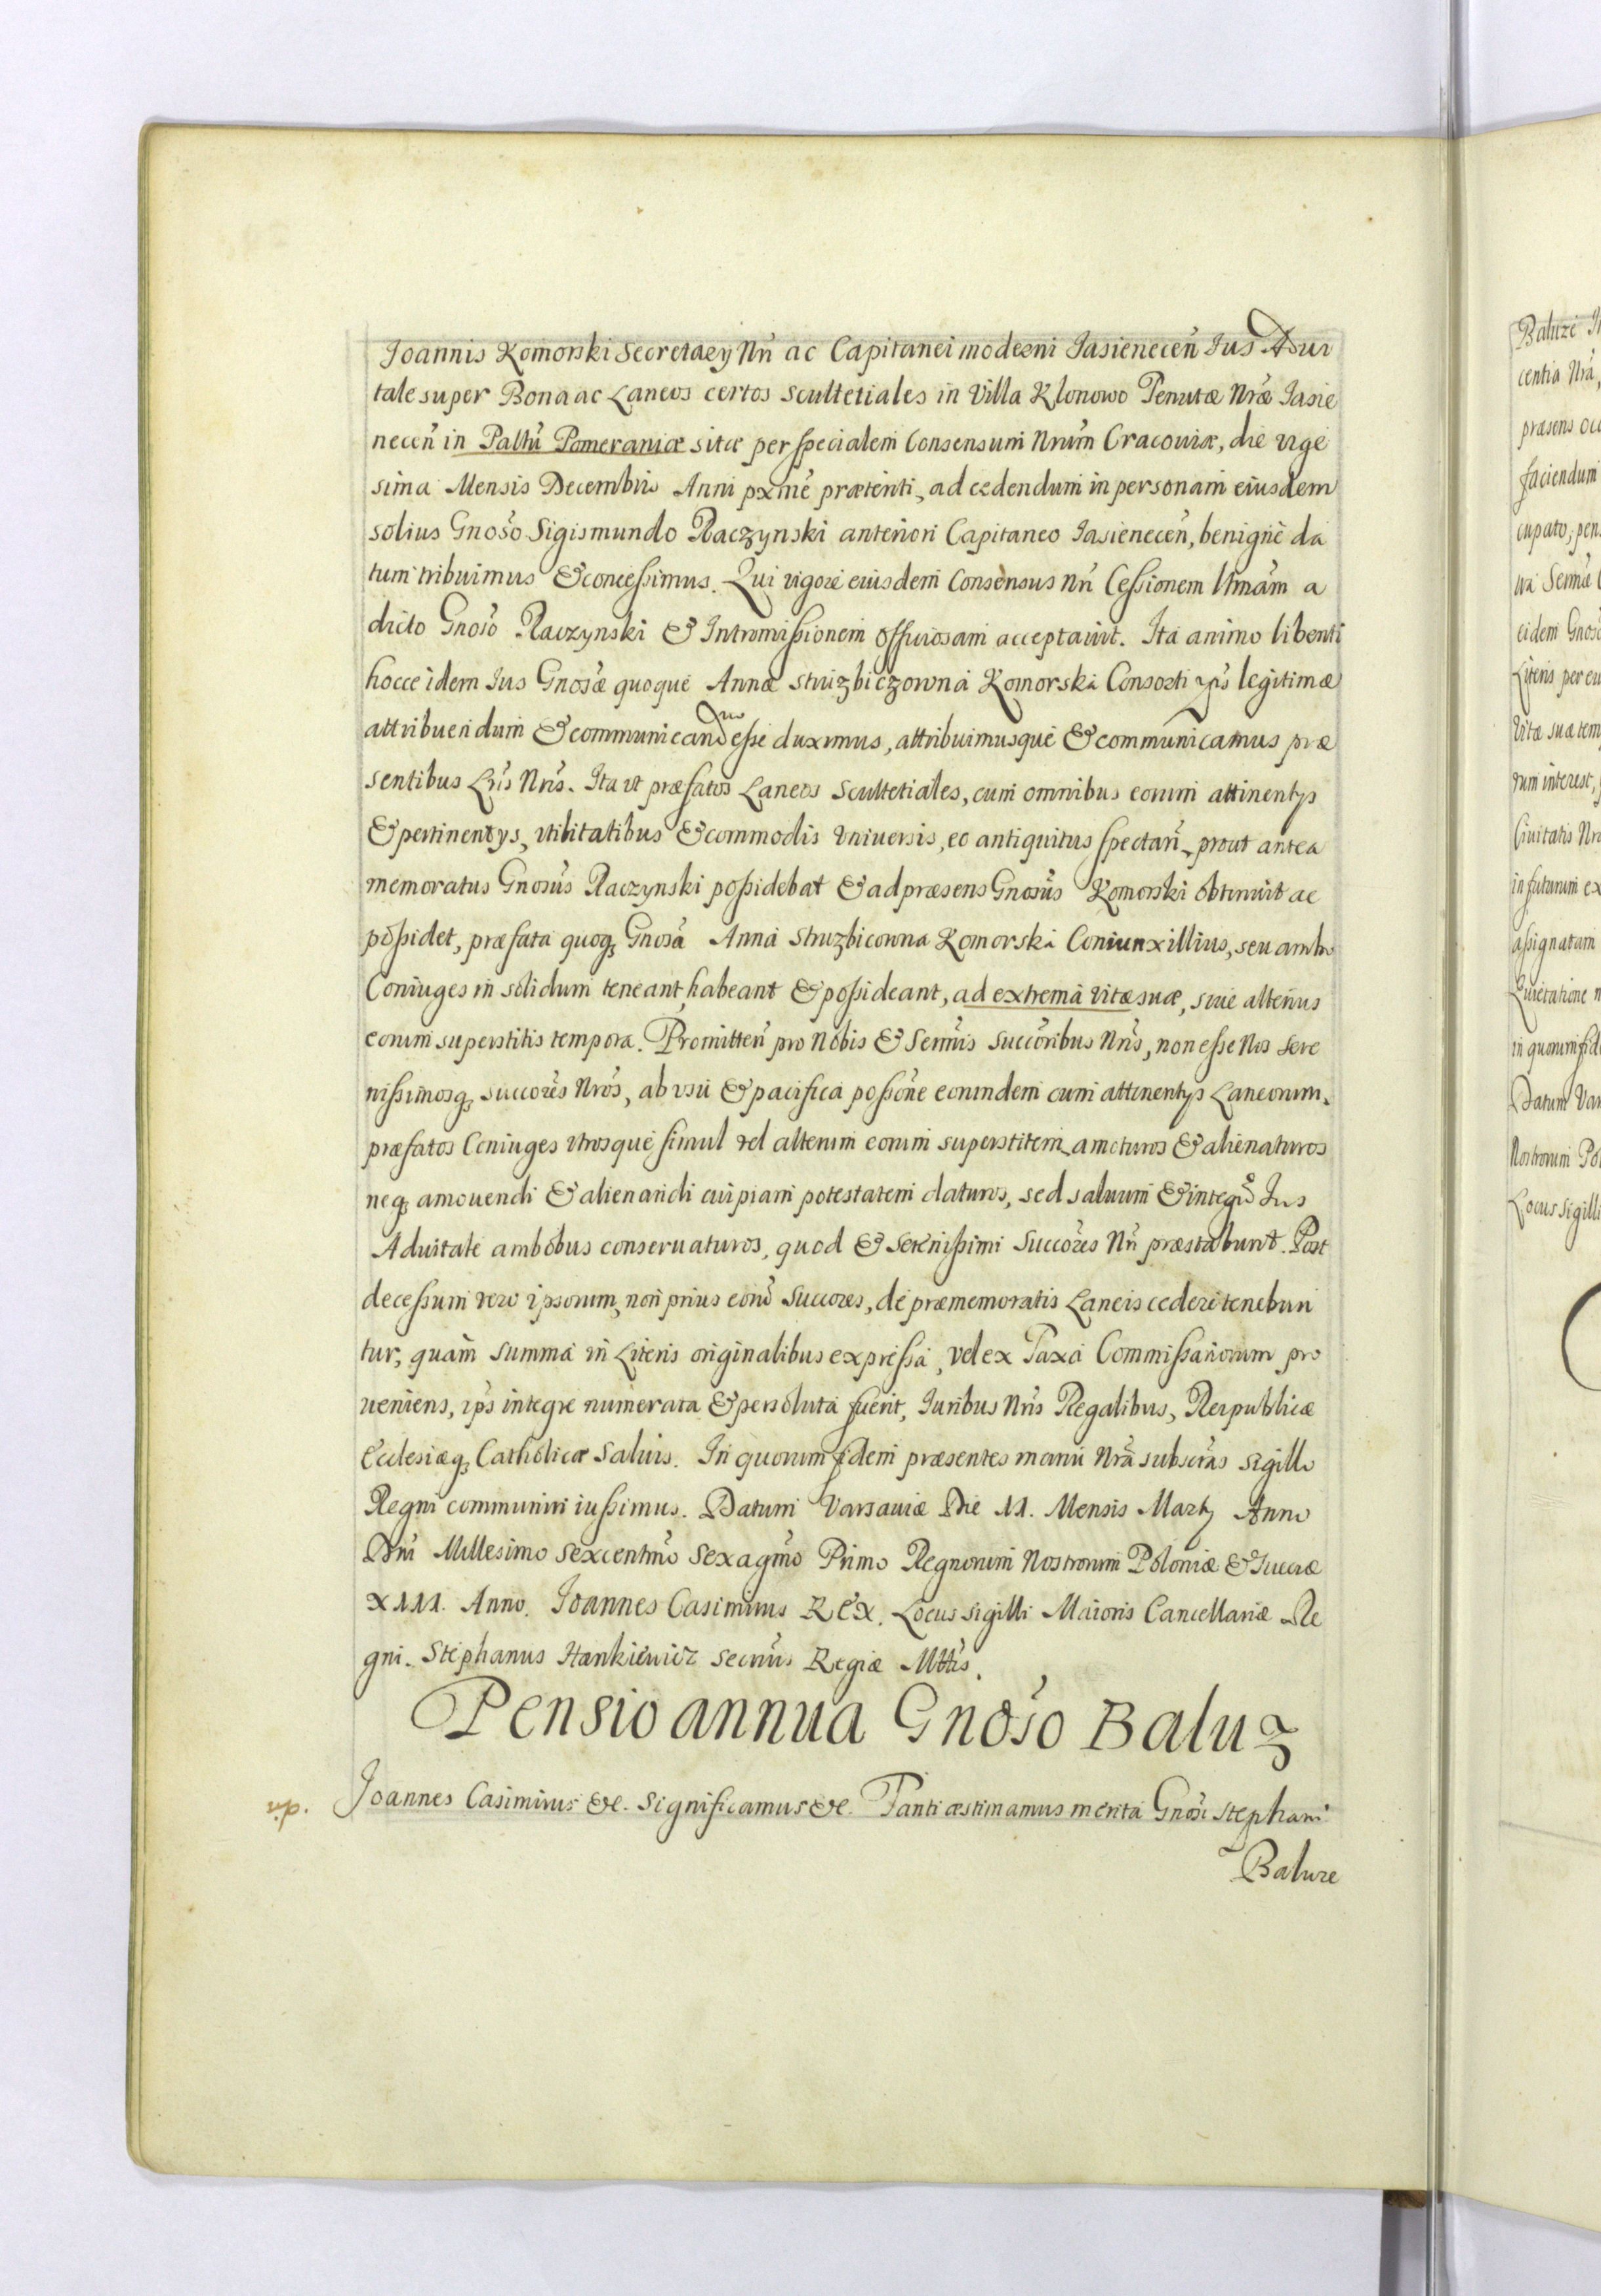 Joannis Komorski Secretarÿ Nri ac Capitanei moderni Jasienecen̄ Jus Advi
tale super Bona ac Laneos certos scultetiales in Villa Klonowo Tenutæ Nræ Jasie
necen̄ in Pallū Pomeraniæ sitæ per specialem Consensum Nrum Cracoviæ, die vige
sima Mensis Decembris Anni pxme præteriti, ad cedendum in personam eiusdem
solius Gnoso Sigismundo Raczynski anteriori Capitaneo Jasienecen̄, benigne da
tum tribuimus & concessimus. Qui vigore eiusdem Consensus Nri Cessionem Itinam a
dicto Gnoso Raczynski & Intromissionem officiosam acceptavit. Ita animo libenti
hocce idem Jus Gnosæ quoque Annæ Struzbiczowna Komorska Consorti ipsius legitimæ
attribuendum & communicandū esse duximus, attribuimusque & communicamus præ
sentibus Lris Nris. Ita ut præfatos Laneos Scultetiales, cum omnibus eorum attinentijs
& pertinentijs, utilitatibus & commodis universis, eo antiquitus spectan̄, prout antea
memoratus Gnosus Raczynski possidebat & ad præsens Gnosus Komorski obtinuit ac
possidet, præfata quoq; Gnosa Anna Struzbicowna Komorska Coniunx illius, seu ambo
Coniuges in solidum teneant, habeant & possideant, ad extrema vitæ suæ, sive alterius
eorum superstitis tempora. Promitten̄ pro Nobis & Sermis Succoribus Nris, non esse Nos Sere
nissimosq; succores Nros, ab usu & pacifica possone eorundem cum attinentijs Laneorum
præfatos Coniuges utrosque simul vel alterum eorum superstitem amoturos & alienaturos
neq; amovendi & alienandi cuipiam potestatem daturos, sed salvum & integrū Jus
Advitale ambobus conservaturos, quod & Serenissimi Succores Nri præstabunt. Post
decessum vero ipsorum, non prius eorū Succores, de præmemoratis Laneis cedere tenebun
tur, quam summa in Literis originalibus expressa, vel ex Taxa Commissariorum pro
veniens, ips integre numerata & persoluta fuerit, Juribus Nris Regalibus, Reipublicæ
Ecclesiæq; Catholicæ salvis. In quorum fidem præsentes manu Nra subscras sigillo
Regni communiri iussimus. Datum Varsaviæ Die 11. Mensis Martij Anno
Dni Millesimo Sexcentmo Sexagmo Primo Regnorum Nostrorum Poloniæ & Sueciæ
XIII. Anno. Joannes Casimirus REX. Locus Sigilli Maioris Cancellariæ Re
gni. Stephanus Hankiewicz Secrius Regiæ Mttis.
Pensio annua Gnoso Baluz
Joannes Casimirus &c. Significamus &c. Tanti æstimamus merita Gnosi Stephani
Baluze